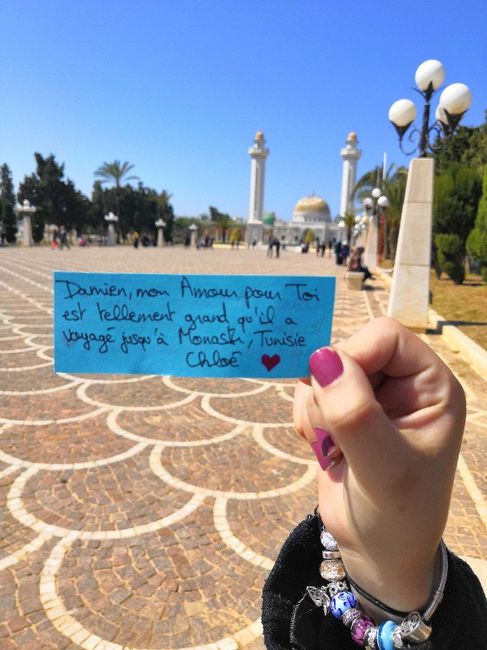 Damien, mon Amour pour Toi
est tellement grand qu'il a
voyagé jusqu'à Monastir, Tunisie
Chloé